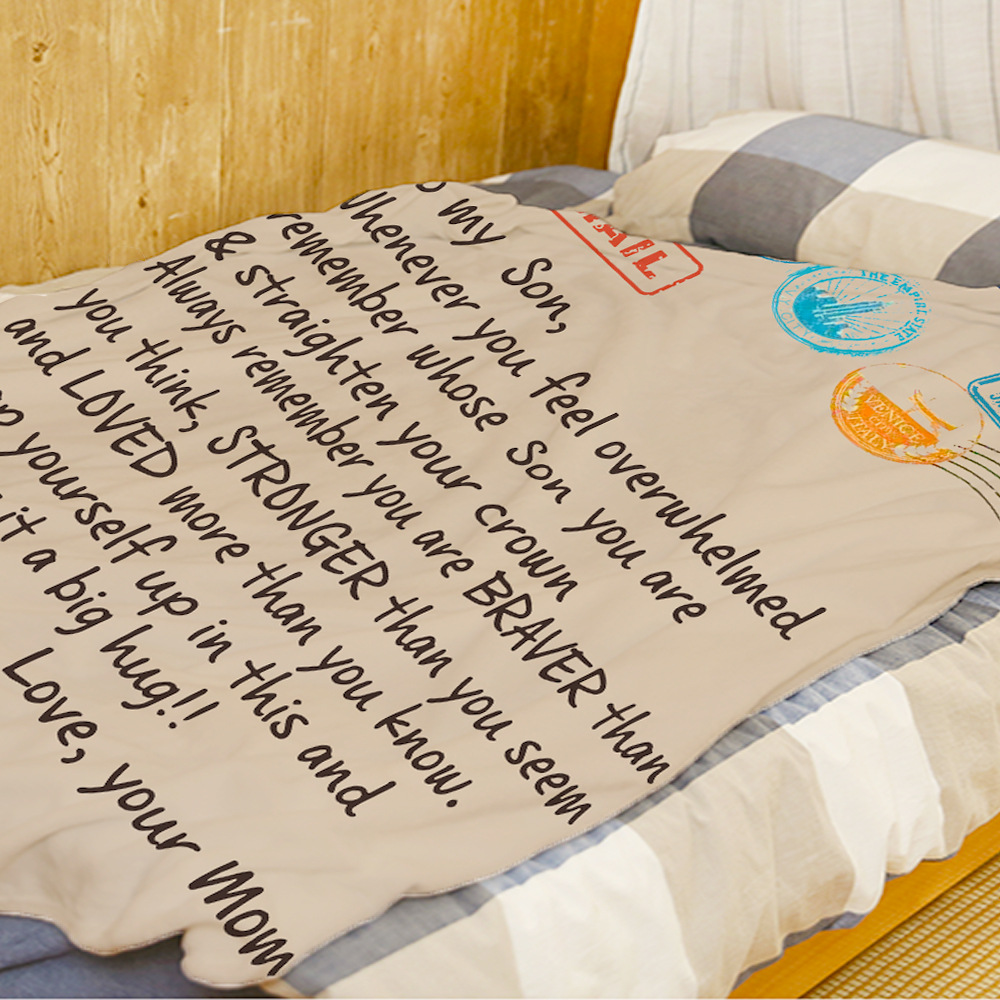 my Son,
Whenever you feel overwhelmed
remember whose Son you are
& straighten your crown
Always remember you are BRAVER than
you think, STRONGER than you seem
and LOVED more than you know.
yourself up in this and
it a big hug!!
Love, your Mom
MAIL
THE EMPIRE STATE
VENICE
CITY
ITALY